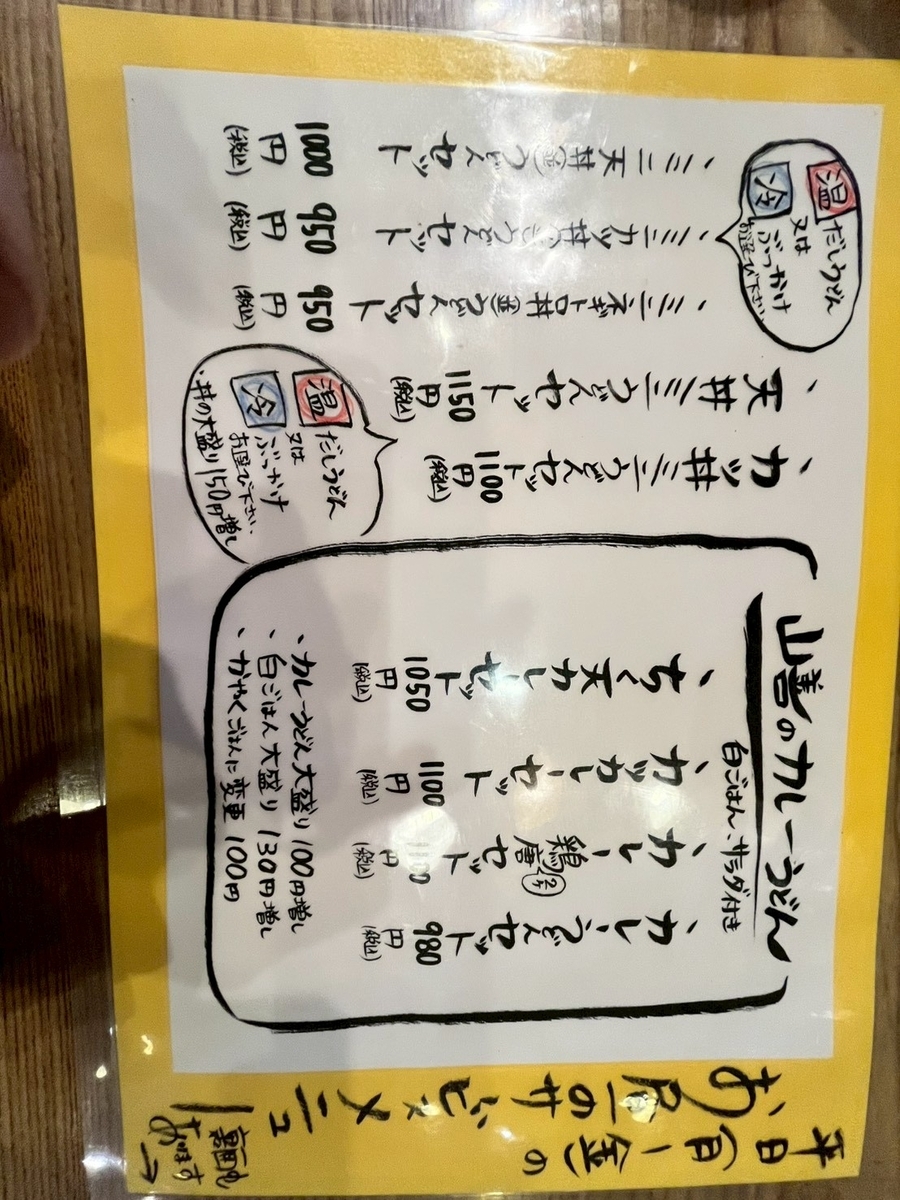 平日(月ー金)の
お昼のサービスメニュー
裏面もあります→
山善のカレーうどん
白ごはん、サラダ付き
・カレーうどんセット
980円(税込)
・カレー鶏唐セット
2ケ
円(税込)
・カツカレーセット
1100円(税込)
・ちく天カレーセット
1050円(税込)
・カレーうどん大盛り 100円増し
・白ごはん大盛り 130円増し
・かやくごはんに変更 100円
・カツ丼ミニうどんセット
1100円(税込)
・天丼ミニうどんセット
1150円(税込)
温 だしうどん
又は
冷 ぶっかけ
お選び下さい
・丼の大盛り150円増し
・ミニネギトロ丼 うどんセット
950円(税込)
・ミニカツ丼 うどんセット
950円(税込)
・ミニ天丼 うどんセット
1000円(税込)
温 だしうどん
又は
冷 ぶっかけ
お選び下さい